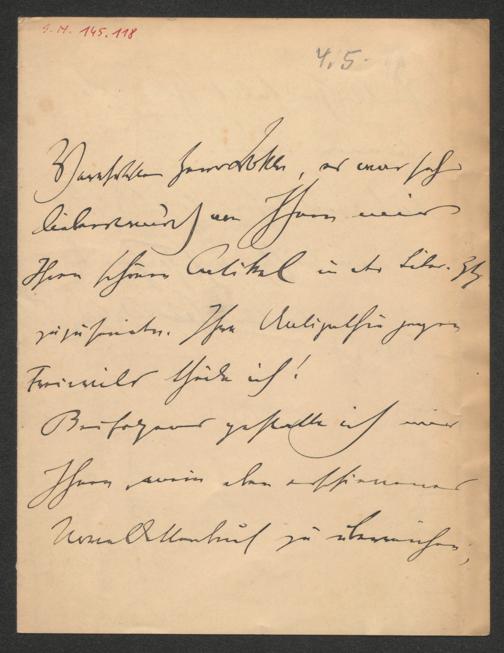 I. N. 145.118
4.5.
Verehrtester Herr Doktor, es war sehr
liebenswürdig von Ihnen mir
Ihren schönen Artikel in der Liter. Ztg
zuzusenden. Ihre Antipathie gegen
theile ich!
Beifolgend gestatte ich mir
Ihnen mein eben erschienenes
zu überreichen,